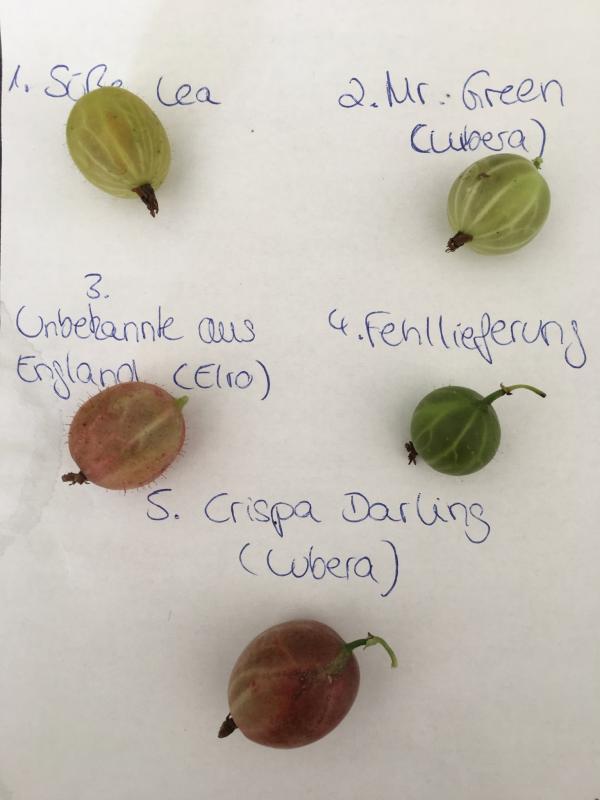 1. Süße Lea
2. Mr. Green
(Lubera)
3.
Unbekannte aus
England (Elro)
4. Fehllieferung
5. Crispa Darling
(Lubera)